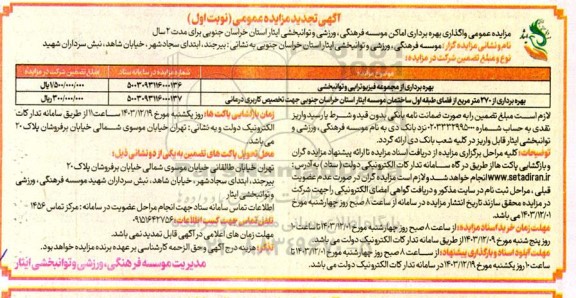 آگهی تجدید مزایده عمومی (نوبت اول)
مزایده عمومی واگذاری بهره برداری اماکن موسسه فرهنگی، ورزشی و توانبخشی ایثار استان خراسان جنوبی برای مدت ۲ سال
نام و نشانی مزایده گزار: موسسه فرهنگی، ورزشی و توانبخشی ایثار استان خراسان جنوبی به نشانی: بیرجند، ابتدای سجادشهر، خیابان شاهد، نبش سرداران شهید
نوع و مبلغ تضمین شرکت در مزایده:
موضوع مزایده
شماره مزایده در سامانه ستاد
مبلغ تضمین شرکت در مزایده
بهره برداری از مجموعه فیزیوتراپی و توانبخشی
۵۰۰۳۰۹۳۱۱۶۰۰۰۱۳۶
۱/۵۰۰/۰۰۰/۰۰۰ ریال
بهره برداری از ۲۷۰ متر مربع از فضای طبقه اول ساختمان موسسه ایثار استان خراسان جنوبی جهت تخصیص کاربری درمانی
۵۰۰۳۰۹۳۱۱۶۰۰۰۱۳۷
۳۰۰/۰۰۰/۰۰۰ ریال
لازم است مبلغ تضمین را به صورت ضمانت نامه بانکی بدون قید و شرط یا رسید واریز
نقدی به حساب شماره نزد بانک دی به نام موسسه فرهنگی، ورزشی و
توانبخشی ایثار قابل واریز در کلیه شعب بانک دی ارائه گردد.
توضیحات: کلیه مراحل برگزاری مزایده از دریافت اسناد مزایده تا ارائه پیشنهاد مزایده گران
و بازگشایی پاکت ها از طریق درگاه سامانه تدارکات الکترونیکی دولت (ستاد) به آدرس:
www.setadiran.ir انجام خواهد شد و لازم است مزایده گران در صورت عدم عضویت
قبلی، مراحل ثبت نام در سایت مذکور و دریافت گواهی امضای الکترونیکی را جهت شرکت
در مزایده محقق سازند تاریخ انتشار مزایده در سامانه از ساعت ۸ صبح روز چهارشنبه مورخ
۱۴۰۳/۱۲/۰۱ می باشد.
مهلت زمان خرید اسناد مزایده: از ساعت ۸ صبح روز چهارشنبه مورخ ۱۴۰۳/۱۲/۰۱ تا ساعت ۱۰
روز پنج شنبه مورخ ۱۴۰۳/۱۲/۰۹ از طریق سامانه تدارکات الکترونیک دولت می باشد.
مهلت آپلود اسناد و بارگذاری پیشنهاد: از ساعت ۸ صبح روز چهارشنبه مورخ ۱۴۰۳/۱۲/۰۱ تا
ساعت ۱۰ روز یکشنبه مورخ ۱۴۰۳/۱۲/۱۹ در سامانه تدارکات الکترونیک دولت می باشد.
زمان بازگشایی پاکت ها: روز یکشنبه مورخ ۱۴۰۳/۱۲/۱۹ ساعت ۱۱ از طریق سامانه تدارکات
الکترونیک دولت و به نشانی: تهران خیابان موسوی شمالی خیابان برفروشان پلاک ۲۰
می باشد.
محل تحویل پاکت های تضمین به یکی از دو نشانی ذیل:
تهران خیابان طالقانی خیابان موسوی شمالی خیابان برفروشان پلاک ۲۰
بیرجند، ابتدای سجادشهر، خیابان شاهد، نبش سرداران شهید موسسه فرهنگی، ورزشی
و توانبخشی ایثار
اطلاعات تماس سامانه ستاد جهت انجام مراحل عضویت در سامانه: مرکز تماس ۱۴۵۶
تلفن تماس جهت کسب اطلاعات: ۰۹۱۵۱۶۴۲۷۵۶
مهلت زمان های اعلامی در آگهی قابل تمدید نمی باشد.
هزینه درج آگهی و حق الزحمه کارشناسی بر عهده برنده مزایده خواهد بود.
مدیریت موسسه فرهنگی، ورزشی و توانبخشی ایثار